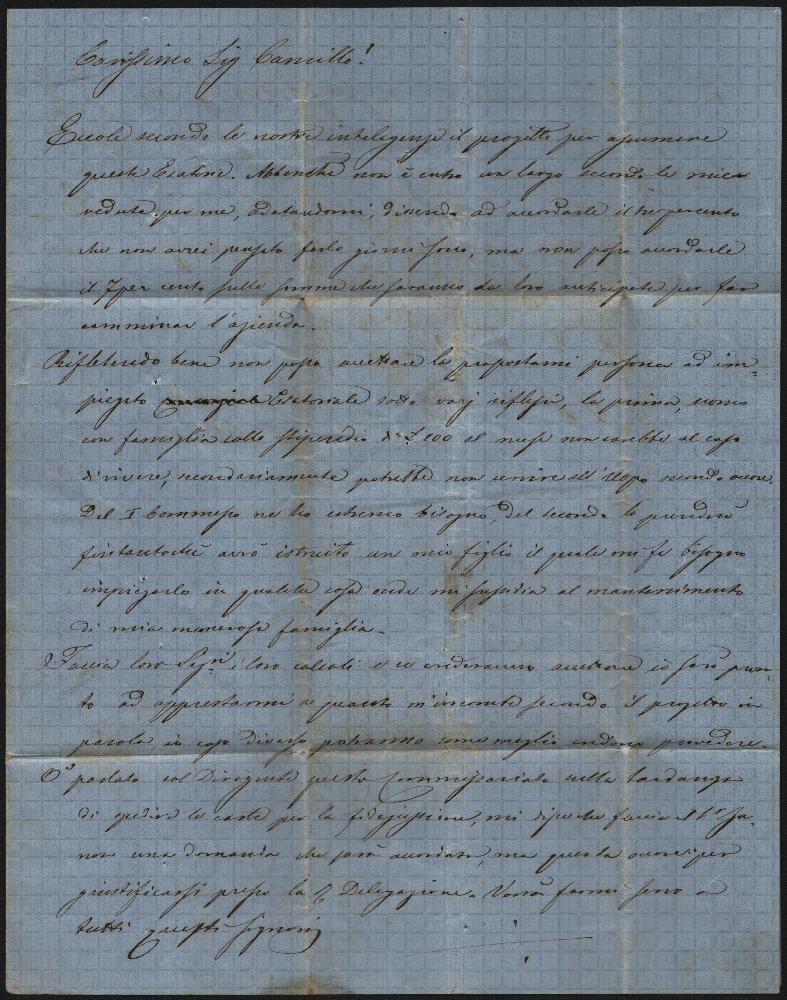 Carissimo Sig Camillo!
Eccole secondo le nostre inteligenze il progetto per assumere
queste Esatorie. Abbenchè non è entro un largo secondo le mie
vedute per me, adatandomi, discendo ad accordarle il tre per cento
che non avrei pensato farlo giorni sono, ma non posso accordarle
il 7 per cento sulle somme che saranno da loro anticipate per far
camminar l'azienda.
Rifletendo bene non posso accettare la propostami persona ad im=
piegato Esatoriale sotto varj riflessi, la prima, uomo
con famiglia collo stipendio di £ 100 al mese non sarebbe al caso
di vivere, secondariamente potrebbe non venire all'uopo secondo occore.
Del I Commesso ne ho estremo bisogno, del secondo lo prenderò
fintantochè avrò istruito un mio figlio il quale mi fa bisogno
impiegarlo in qualche cosa onde mi sussidia al mantenimento
di mia numerosa famiglia.
Faccia loro Sign.i loro calcoli e se crederanno accettare io sarò pron=
to ad apprestarmi a quanto m'incombe secondo il progetto in
parola in caso diverso potranno come meglio credono provedere.
Ò parlato col Dirigente questo Commissariato sulla tardanza
di spedire le carte per la fidejussione, mi disse che faccia
una domanda che sarà accordata, ma questa occore per
giustificarsi presso la Delegazione. Vorrà farmi servo a
tutti questi signori